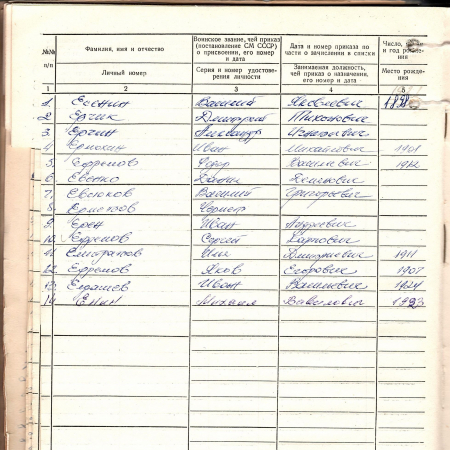 №№ п/п
Фамилия, имя и отчество
Личный номер
Воинское звание, чей приказ (постановление СМ СССР) о присвоении, его номер и дата
Серия и номер удостоверения личности
Дата и номер приказа по части о зачислении в списки
Занимаемая должность, чей приказ о назначении, его номер и дата
Число, и год рождения
Место рождения
1 2 3 4 5
1. Есенин Василий Яковлевич 1898
2. Ерчик Дмитрий Никонович
3. Ерчин Александр
4 Ермохин Иван Михайлович 1901
5. Ефремов Федор Васильевич 1912
6. Евенко
7. Евсюков Василий Григорьевич
8.
9. Ерен Иван Андреевич
10. Ефремов Сергей Карпович
11. Елистратов Илья Дмитриевич 1911
12. Ефремов Яков Егорович 1907
13. Елдашев Иван Васильевич 1924
14. Енин Михаил Вавилович 1923